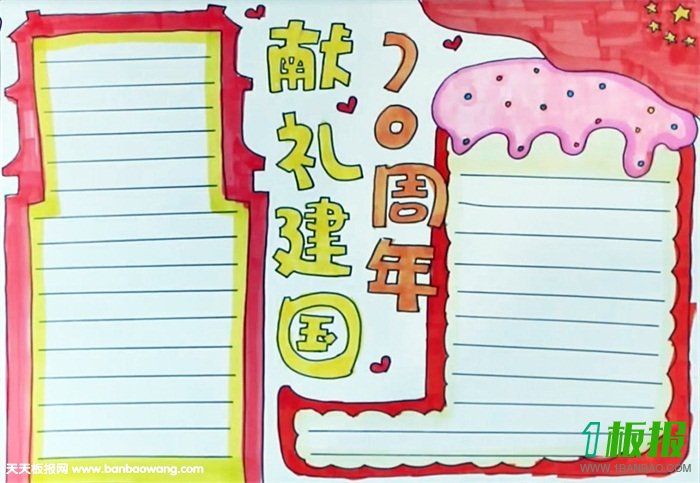 献礼建国
70周年
1板报
WWW.1BANBAO.COM
天天板报网 www.banbaowang.com